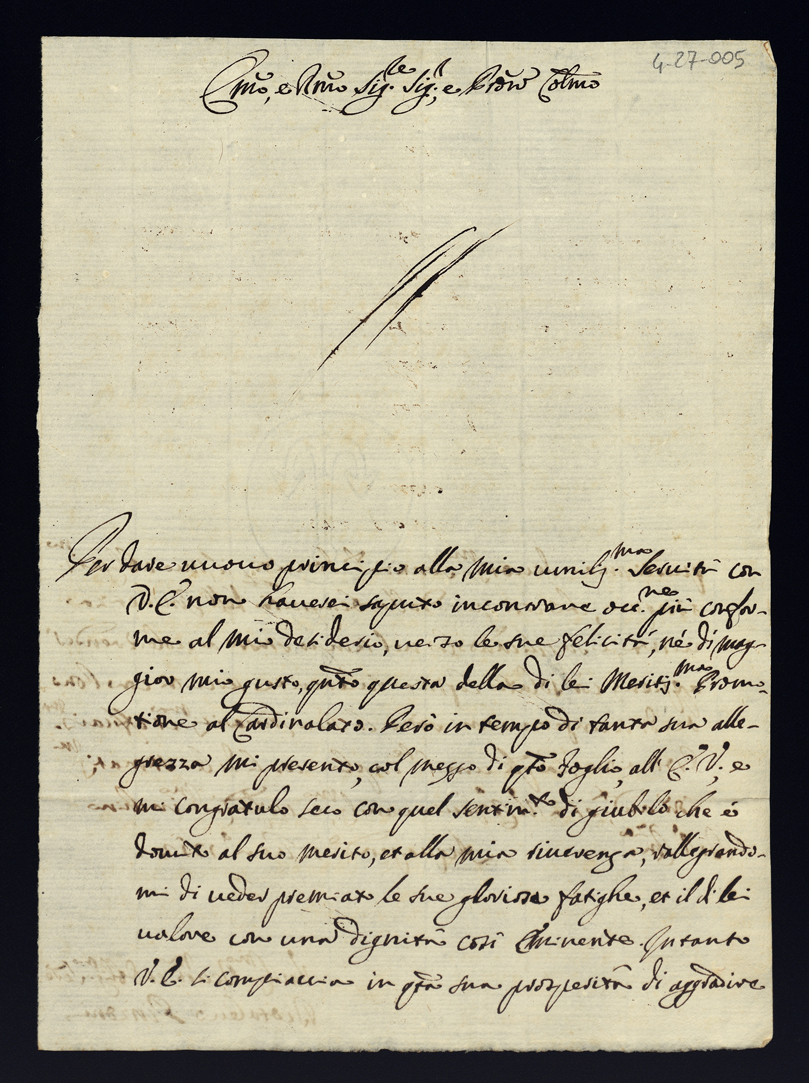 4-27-005
Emo, e Rmo Sig.re Sig.r, e Prõn Colmo
Per dare nuouo principio alla mia umilis.ma Seruitù con
V. E. non hauerei saputo incontrare occ.ne più confor-
me al mio desiderio, uerso le sue felicità, né di mag-
gior mio gusto, qnto questa della di lei Meritis.ma Promo-
tione al Cardinalato. Però in tempo di tanta sua alle-
grezza mi presento, col mezzo di qto foglio, all' E. V., e
mi congratulo seco con quel sentim.to di giubilo che é
douuto al suo merito, et alla mia riuerenza, rallegrando-
mi di ueder premiate le sue gloriose fatighe, et il di lei
ualore con una dignità così Eminente. Intanto
V. E. si compiaccia in qta sua prosperità di aggradire